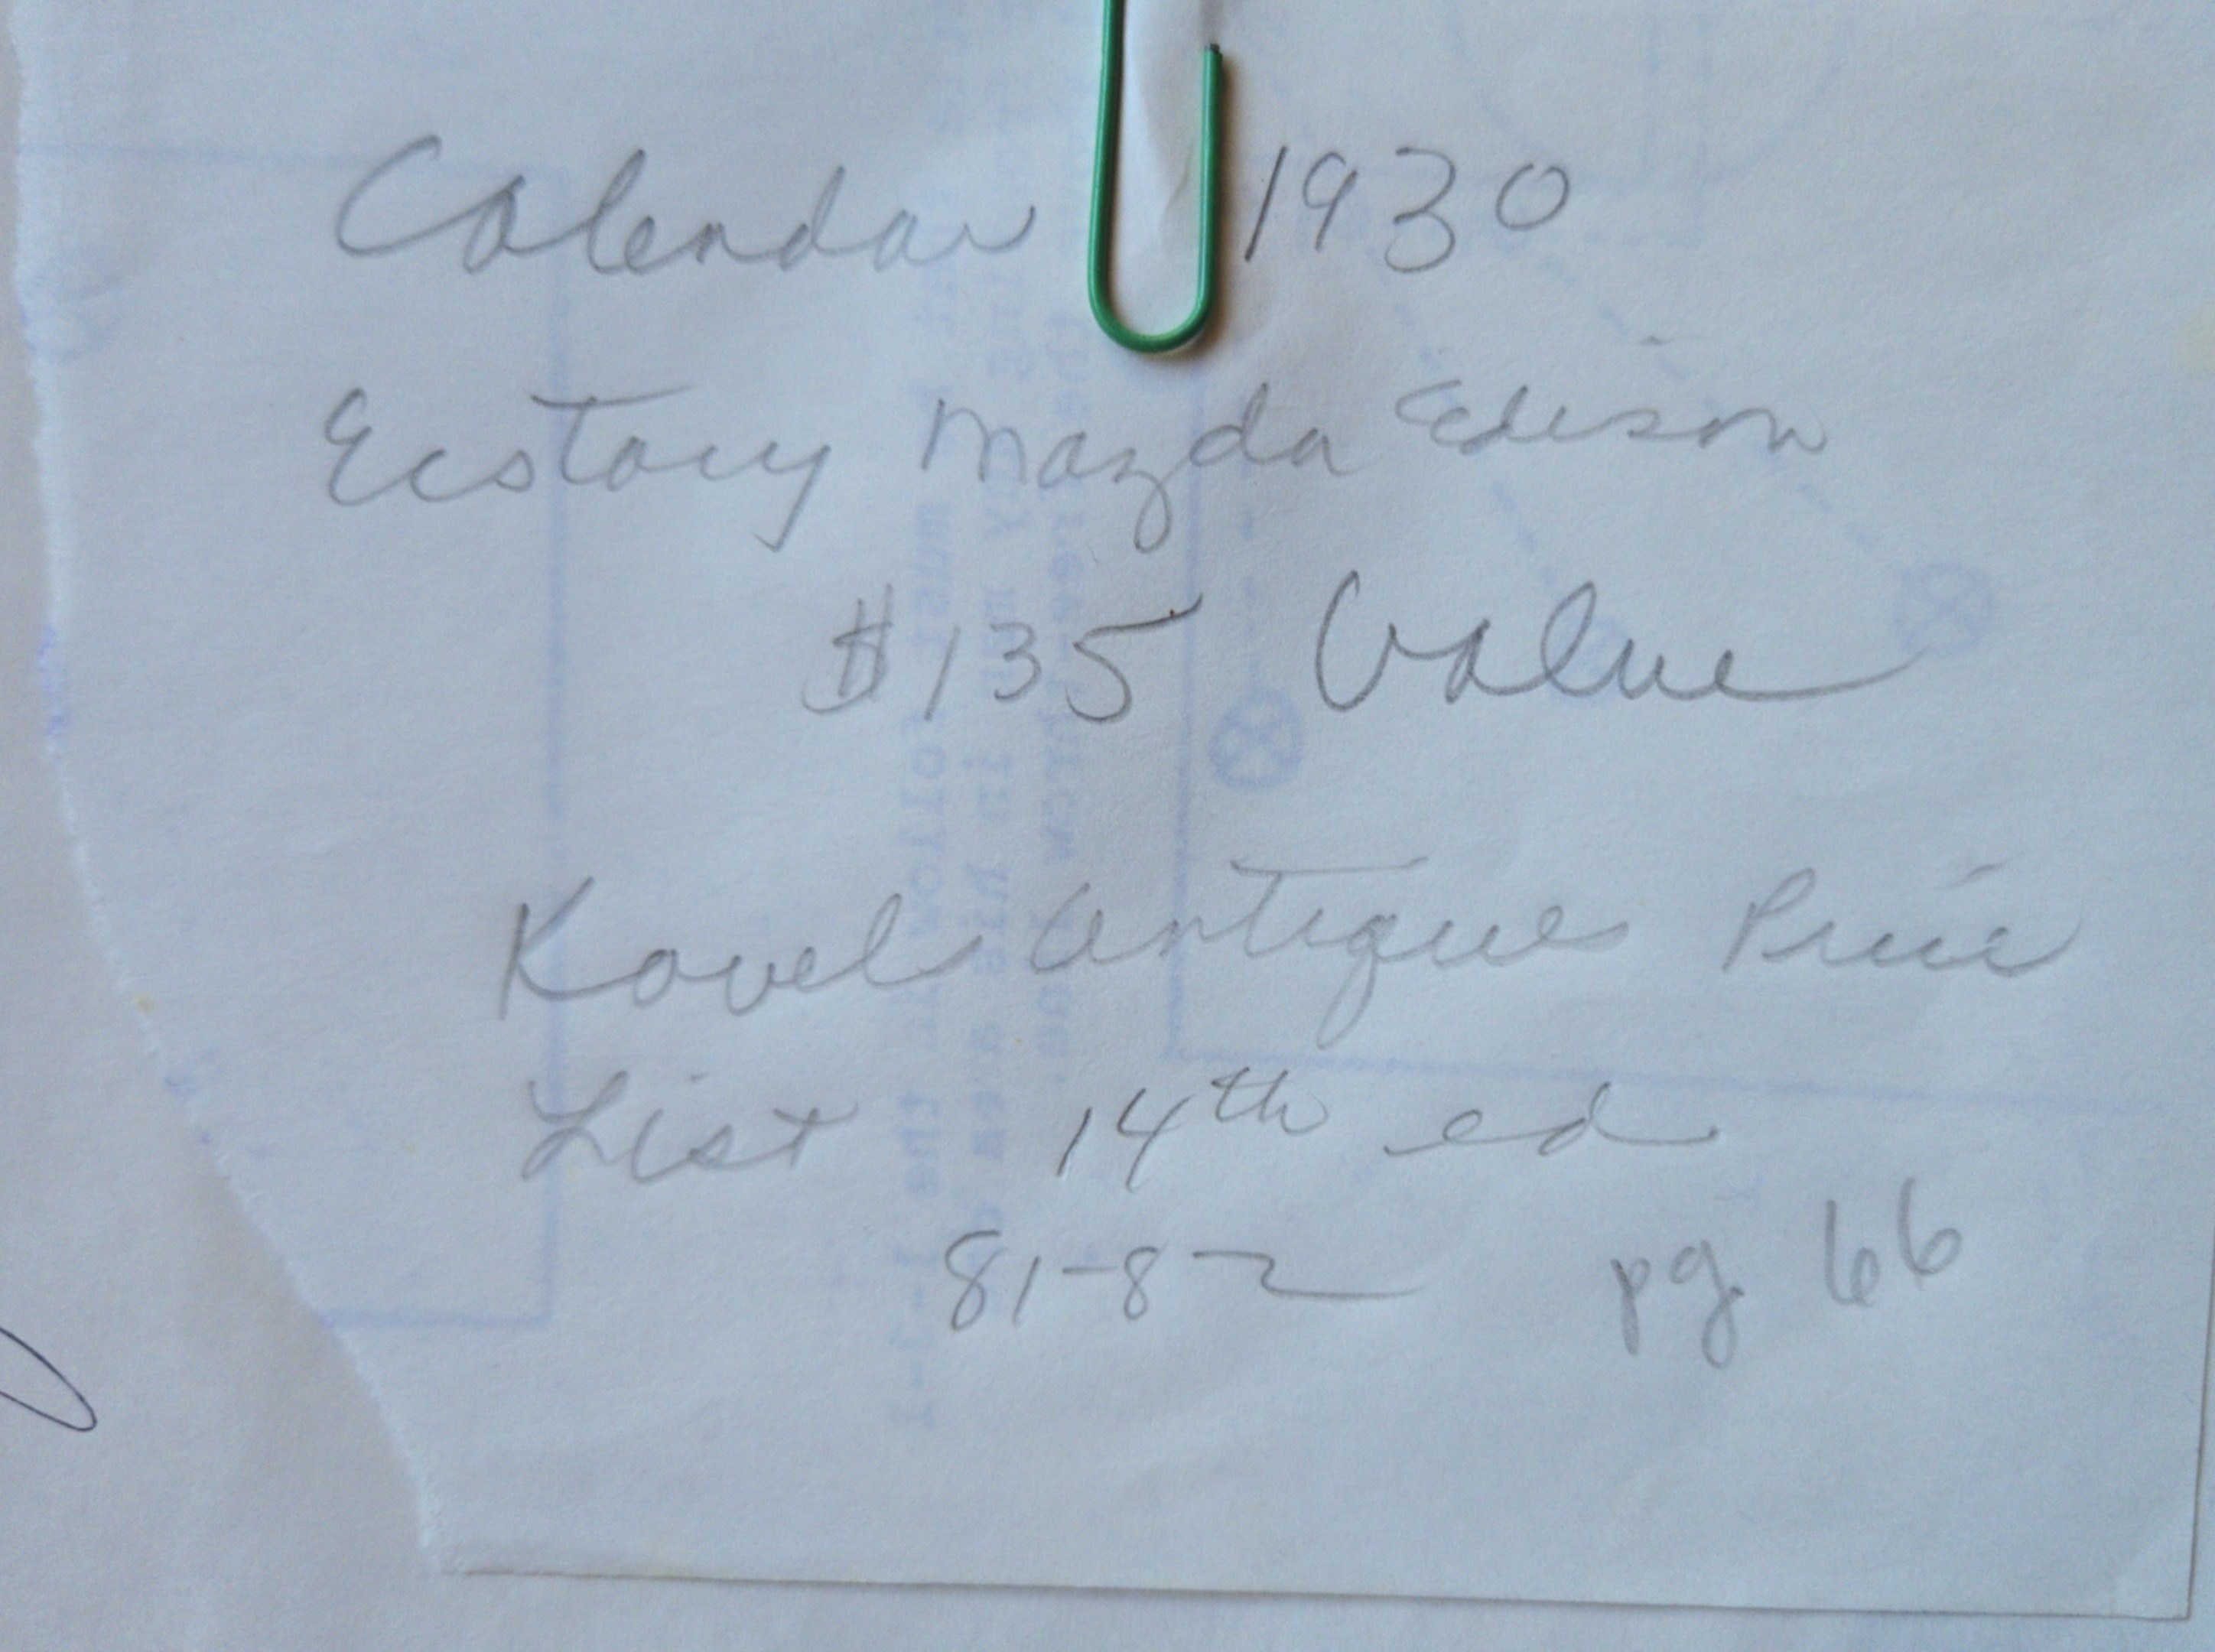 Calendar 1930
Ecstacy Mazda Edison
$135 Value
Kovel Antiques Price
List 14th ed
81-82 pg 66